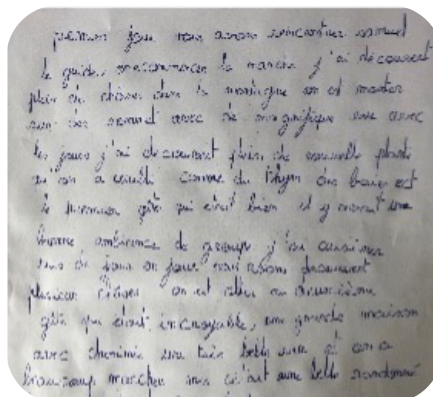 premier jour nous avons rencontrer samuel
le guide, on commencer la marche j'ai découvert
plein de choses dans la montagne on est monter
sur des sommet avec de magnifique vue avec
les jours j'ai découvert plein de nouvelle plante
qu'on a cueilli comme du thym des baies et
le premier gîte qui était bien il y avait une
bonne ambiance de groupe j'ai
de jour en jour nous avons
plusieur on est aller au deuxième
gîte qui était incroyable, une grande maison
avec cheminée une très belle vue et on a
beaucoup marcher mais c'était une belle randonné